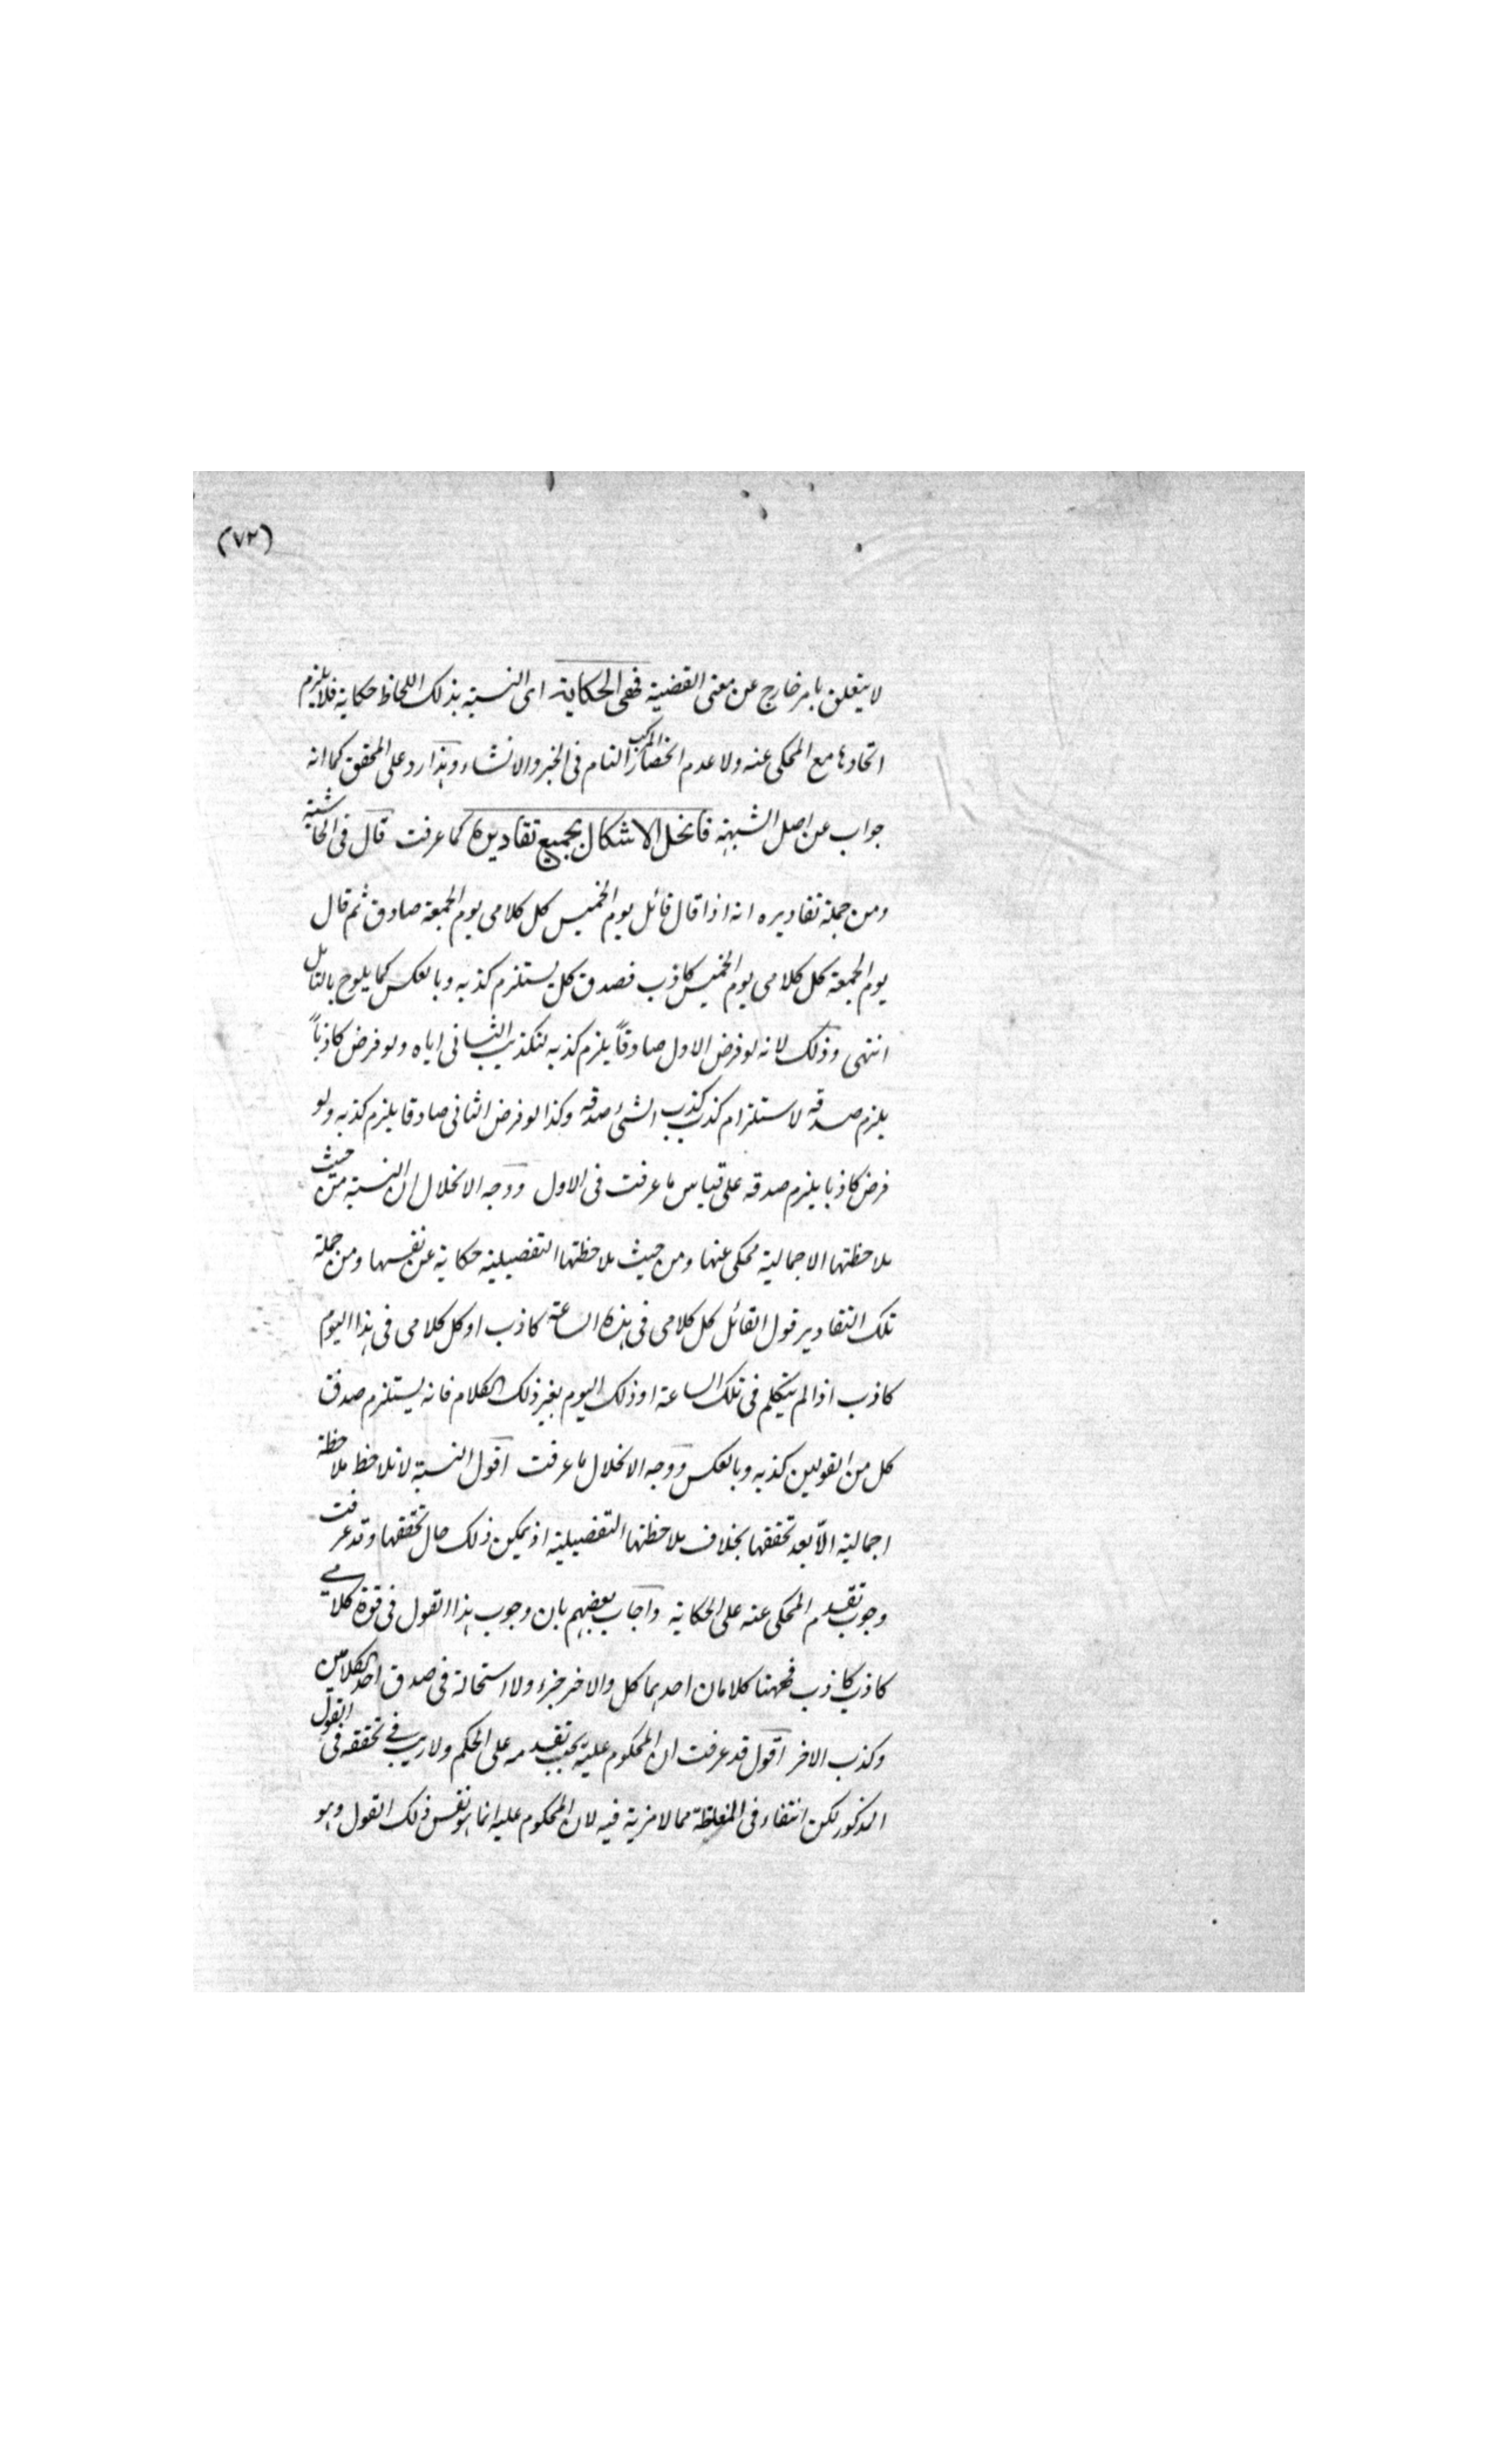 (٧٢)
لا يتعلق بامر خارج عن معنى القضية فهى الحكاية اى النسبة بذلك اللحاظ حكاية فلا يلزم
اتحادها مع المحكى عنه ولا عدم انحصار المركب التام فى الخبر والانشاء وهذا رد على المحقق كما انه
جواب عن اصل الشبهة فانحل الاشكال بجميع تقاديره كما عرفت قال فى الحاشية
ومن جملة تقاديره انه اذا قال قائل يوم الخميس كل كلامى يوم الجمعة صادق ثم قال
يوم الجمعة كل كلامى يوم الخميس كاذب فصدق كل يستلزم كذبه وبالعكس كما يلوح بالتامل
انتهى وذلك لانه لو فرض الاول صادقاً يلزم كذبه لتكذيب الثانى اياه ولو فرض كاذباً
يلزم صدقه لاستلزام كذب كذب الشئ صدقه وكذا لو فرض الثانى صادقا يلزم كذبه ولو
فرض كاذبا يلزم صدقه على قياس ما عرفت فى الاول ووجه الانحلال ان النسبة من حيث
ملاحظتها الاجمالية محكى عنها ومن حيث ملاحظتها التفصيلية حكاية عن نفسها ومن جملة
تلك التقادير قول القائل كل كلامى فى هذه الساعة كاذب او كل كلامى فى هذا اليوم
كاذب اذا لم يتكلم فى تلك الساعة او ذلك اليوم بغير ذلك الكلام فانه يستلزم صدق
كل من القولين كذبه وبالعكس ووجه الانحلال ما عرفت اقول النسبة لا تلاحظ ملاحظة
اجمالية الّا بعد تحققها بخلاف ملاحظتها التفصيلية اذ يمكن ذلك حال تحققها وقد عرفت
وجوب تقدم المحكى عنه على الحكاية واجاب بعضهم بان وجوب هذا القول فى قوة كلامے
كاذب كاذب فههنا كلامان احدهما كل والاخر جزء ولا استحالة فى صدق احد الكلامين
وكذب الاخر اقول قد عرفت ان المحكوم عليه يجب تقدمه على الحكم ولا ريب فے تحققه فى القول
المذكور لكن انتفاء فى المغلطة مما لا مزية فيه لان المحكوم عليه انما هو نفس ذلك القول وهو